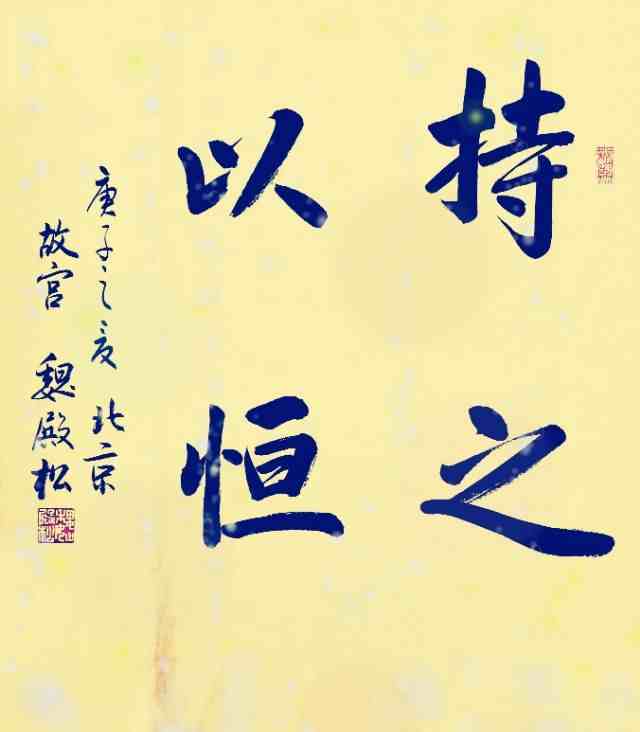 持之
以恒
庚子之夏 北京
故宫 魏殿松